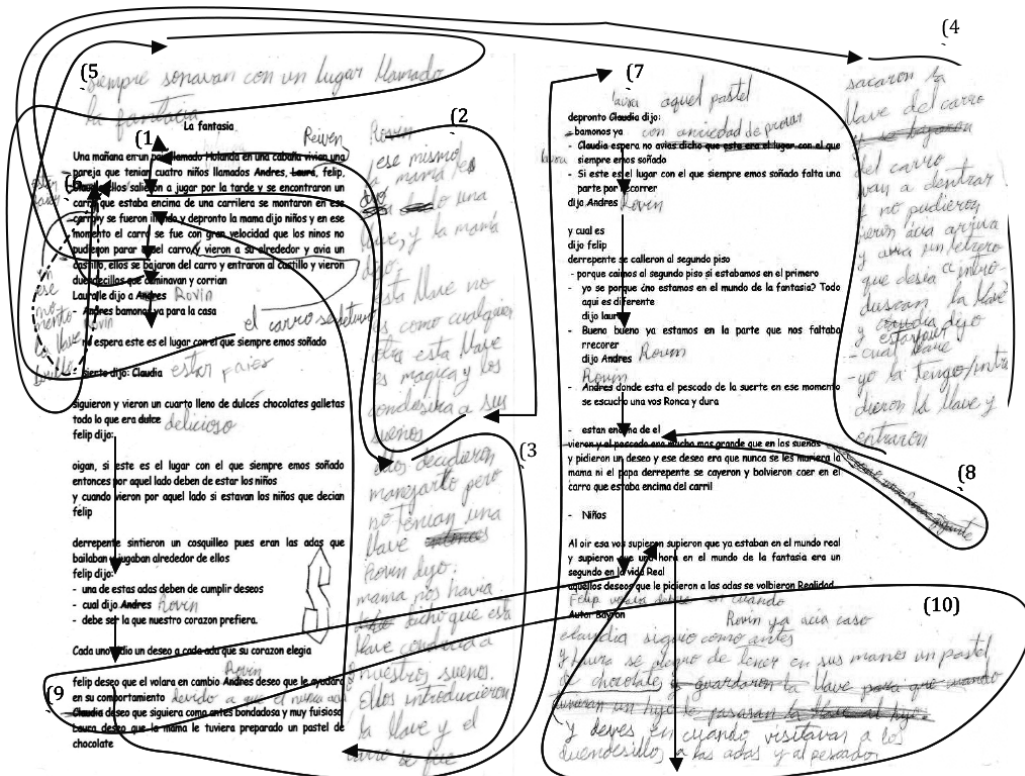 (5
siempre sonavan con un lugar llamado
la fantacia
La fantasia
(1
Reiven
Una mañana en un pais llamado Holanda en una cabaña vivian una
pareja que tenian cuatro niños llamados Andres, Laura, felip,
ellos salieron a jugar por la tarde y se encontraron un
carro que estaba encima de una carrilera se montaron en ese
carro y se fueron y depronto la mama dijo niños y en ese
momento el carro se fue con gran velocidad que los ninos no
pudieron parar aquel carro y vieron a su alrededor y avia un
castillo, ellos se bajaron del carro y entraron al castillo y vieron
duendecillos que caminavan y corrian
Laura le dijo a Andres Rovin
- Andres bamonos ya para la casa
Rovin
el carro se detuvo
- no espera este es el lugar con el que siempre emos soñado
- siento dijo: Claudia estar
en
ese
mo
mento
la llave
siguieron y vieron un cuarto lleno de dulces chocolates galletas
todo lo que era dulce delicioso
felip dijo:
oigan, si este es el lugar con el que siempre emos soñado
entonces por aquel lado deben de estar los niños
y cuando vieron por aquel lado si estavan los niños que decian
felip
derrepente sintieron un cosquilleo pues eran las adas que
bailaban y jugaban alrededor de ellos
felip dijo:
- una de estas adas deben de cumplir deseos
- cual dijo Andres Rovin
- debe ser la que nuestro corazon prefiera.
Cada uno pidio un deseo a cada ada que su corazon elegia
Rovin
felip deseo que el volara en cambio Andres deseo que le ayudara
(9
en su comportamiento devido a que el nunca
Claudia deseo que siguiera como antes bondadosa y muy juisiosa
Laura deseo que la mama le tuviera preparado un pastel de
chocolate
(2
Rovin
ese mismo
la mamá les
dio una
llave, y la mamá
dijo:
esta llave no
es como cualquier
otra esta llave
es magica y los
condusira a sus
sueños
(3
ellos decidieron
manejarlo pero
no tenian una
llave entonces
Rovin dijo:
mama nos havia
dicho que esta
llave conducia a
nuestros sueños.
Ellos introducieron
la llave y el
carro se fue
(7
laura aquel pastel
depronto Claudia dijo:
- bamonos ya con anciedad de provar
- Claudia espera no avias dicho que este era el lugar con el que
laura
siempre emos soñado
- Si este es el lugar con el que siempre emos soñado falta una
parte por recorrer
dijo Andres Rovin
y cual es
dijo felip
derrepente se calleron al segundo piso
- porque caimos al segundo piso si estabamos en el primero
- yo se porque ¿no estamos en el mundo de la fantasia? Todo
aqui es diferente
dijo laura
- Bueno bueno ya estamos en la parte que nos faltaba
rrecorer
dijo Andres Rovin
Rovin
- Andres donde esta el pescado de la suerte en ese momento
se escucho una vos Ronca y dura
- estan encima de el
vieron y el pescado era mucho mas grande que en los sueños
y pidieron un deseo y ese deseo era que nunca se les muriera la
mama ni el papa derrepente se cayeron y bolvieron caer en el
carro que estaba encima del carril
- Niños
Al oir esa vos supieron supieron que ya estaban en el mundo real
y supieron que una hora en el mundo de la fantasia era un
segundo en la vida Real
aquellos deseos que le pidieron a las adas se volbieron Realidad
Felip volava deves en cuando
Autor Bayron
(4
sacaron la
llave del carro
y se bajaron
del carro
van a dentrar
y no pudieron
vieron acia arriva
y avia un letrero
que desia intro-
duscan la llave
y claudia dijo
- cual llave
- yo la tengo/intro
dieron la llave y
entraron
(8
gigante
(10)
Rovin ya acia caso
claudia siguio como antes
y Laura se alegro de tener en sus manos un pastel
de chocolate y guardaron la llave para que cuando
tuvieran un hijo le pasaran la llave al hijo
y deves en cuando visitavan a los
duendesillos a las adas y al pescado